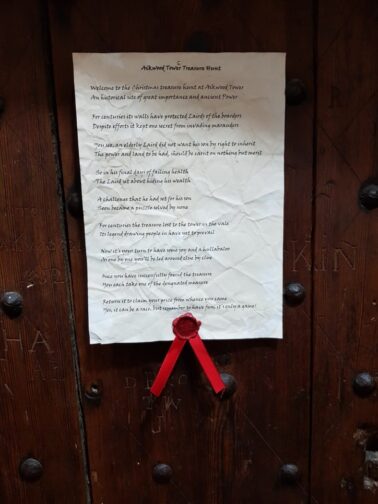 Aikwood Tower Treasure Hunt
Welcome to the Christmas treasure hunt at Aikwood Tower
An historical site of great importance and ancient Power
For centuries its walls have protected Lairds of the boarders
Despite efforts it kept one secret from invading marauders
You see, an elderly Laird did not want his son by right to inherit
The power and land to be had, should be earnt on nothing but merit
So in his final days of failing health
The Laird set about hiding his wealth
A challenge that he had set for his son
Soon became a puzzle solved by none
For centuries the treasure lost to the tower in the vale
Its legend drawing people in have yet to prevail
Now it's your turn to have some joy and a hullabaloo
As one by one you'll be led around clue by clue
Once you have successfully found the treasure
You each take one of the designated measure
Return it to claim your prize from whence you came
Yes, it can be a race, but remember to have fun, it is only a game!
HA